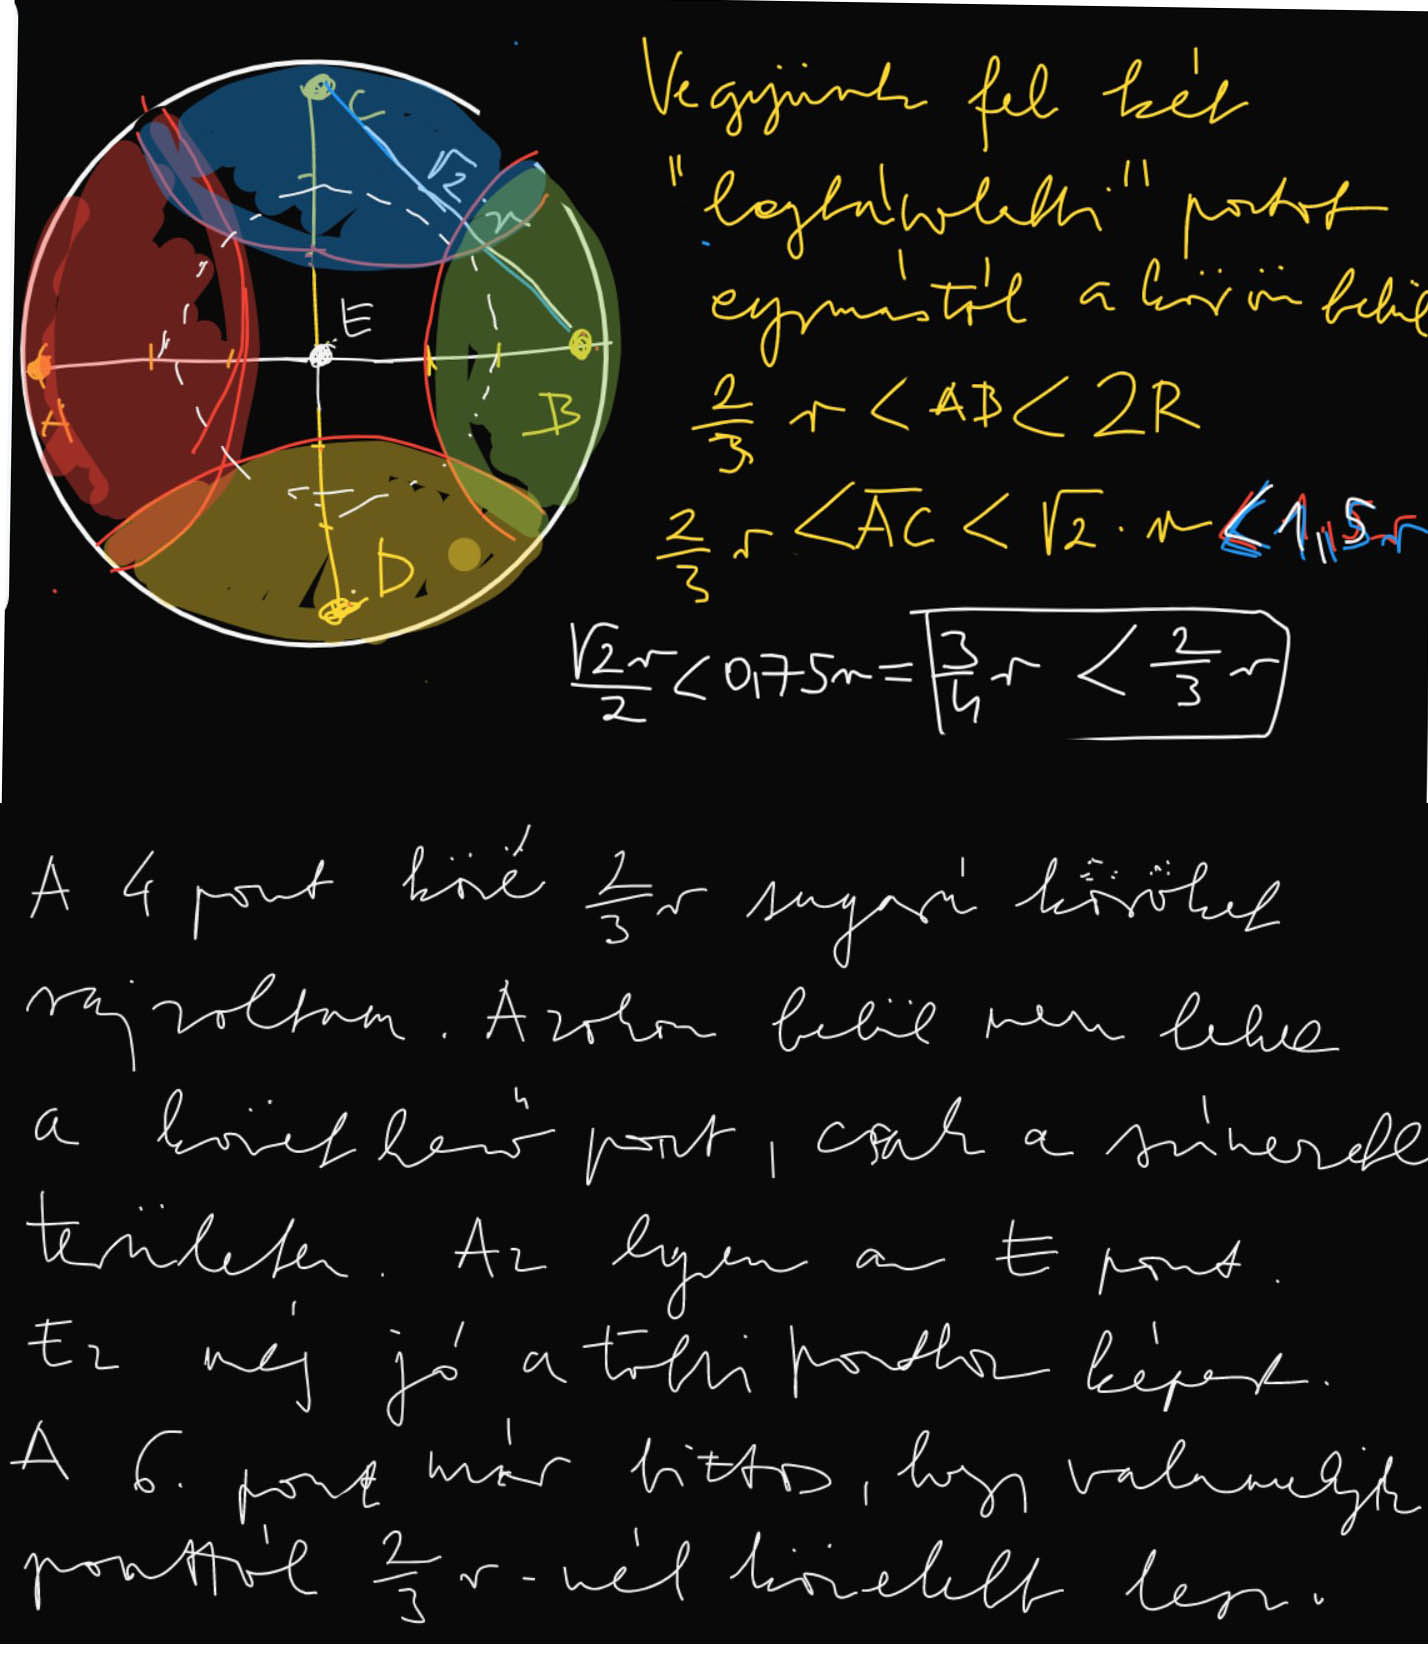 Vegyünk fel két
"legtávolabbi" pontot
egymástól a körön belül
2/3 r < AB < 2R
2/3 r < A̅C̅ < √2 · r < 1,5r
√2r/2 < 0,75r = 3/4 r < 2/3 r
C
√2 r
E
A
B
D
A 4 pont köré 2/3 r sugarú köröket
rajzoltam. Azokon belül nem lehet
a következő pont, csak a színezetlen
területen. Az ilyen az E pont.
Ez még jó a többi ponthoz képest.
A 6. pont már biztos, hogy valamelyik
ponttól 2/3 r-nél közelebb lesz.